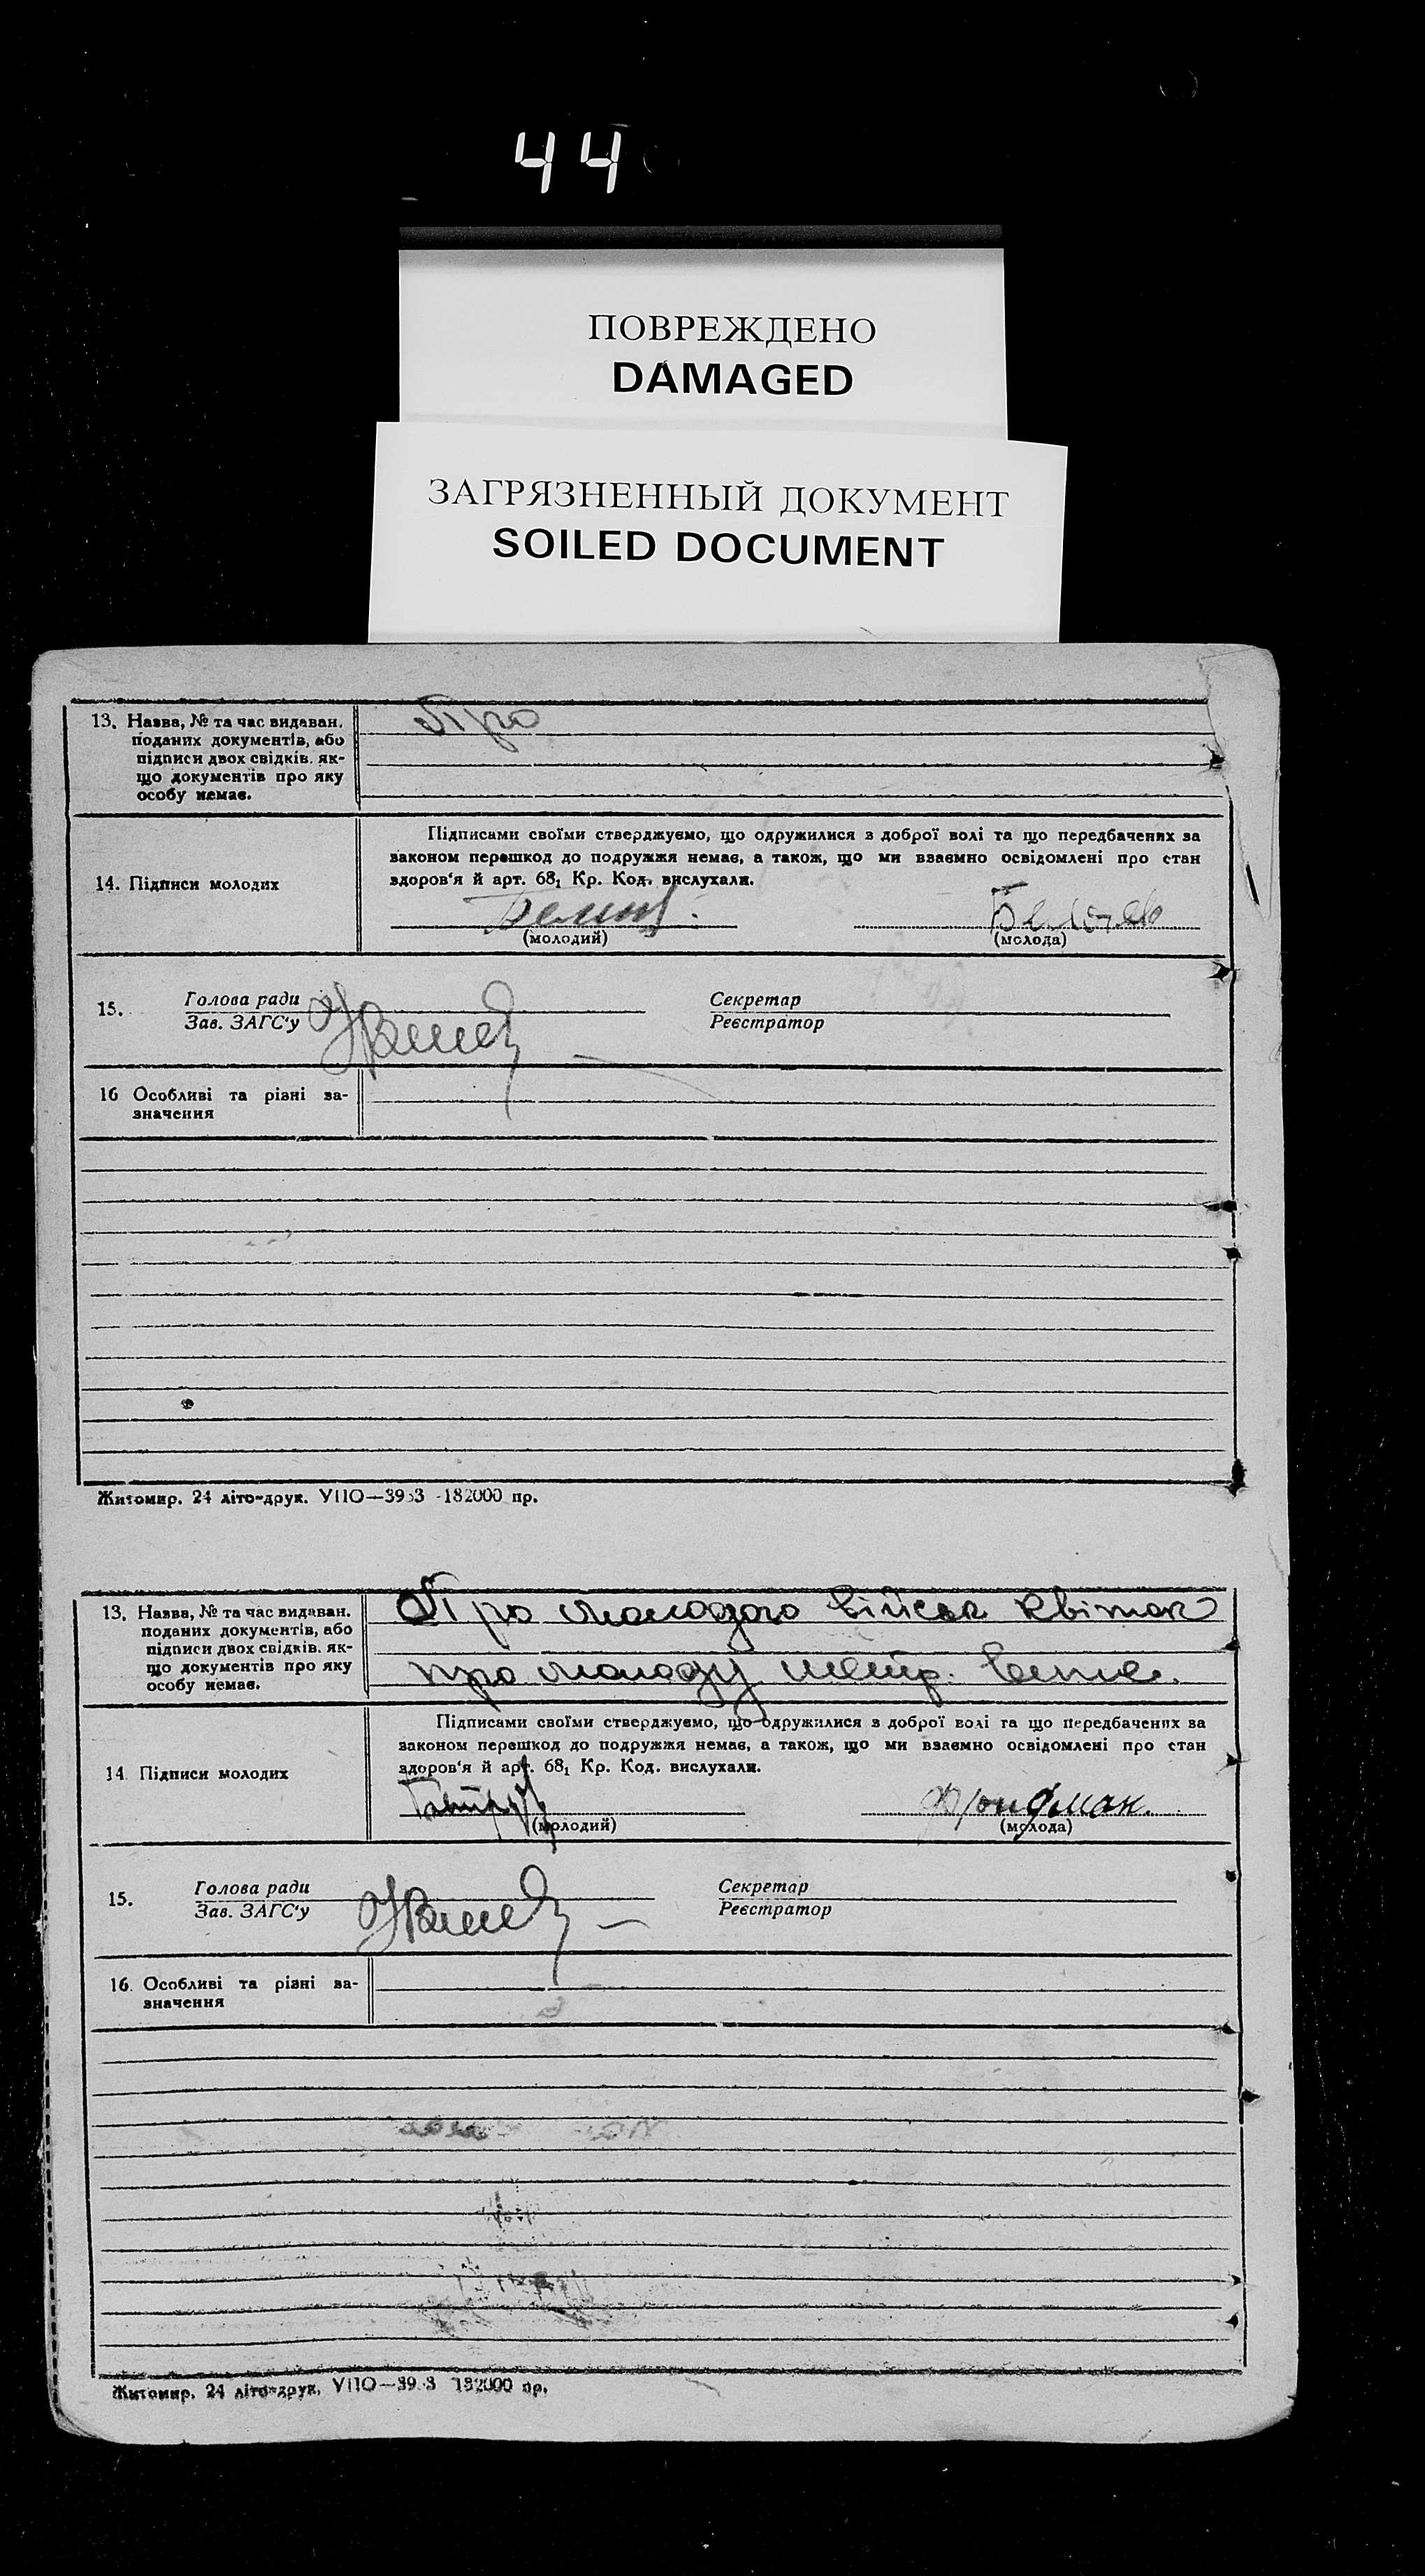 44
ПОВРЕЖДЕНО
DAMAGED
ЗАГРЯЗНЕННЫЙ ДОКУМЕНТ
SOILED DOCUMENT
13. Назва, № та час видаван.
поданих документів, або
підписи двох свідків. як-
що документів про яку
особу немає.
Про
Підписами своїми стверджуємо, що одружилися з доброї волі та що передбачених за
законом перешкод до подружжя немає, а також, що ми взаємно освідомлені про стан
здоров'я й арт. 68₁ Кр. Код. вислухали.
14. Підписи молодих
(молодий) (молода)
15. Голова ради Секретар
Зав. ЗАГС'у Реєстратор
16 Особливі та різні за-
значення
Житомир. 24 літо-друк. УПО—3953 -182000 пр.
13. Назва, № та час видаван.
поданих документів, або
підписи двох свідків. як-
що документів про яку
особу немає.
Про молодого військ квіток
про молоду метр.
Підписами своїми стверджуємо, що одружилися з доброї волі та що передбачених за
законом перешкод до подружжя немає, а також, що ми взаємно освідомлені про стан
здоров'я й арт. 68₁ Кр. Код. вислухали.
14. Підписи молодих
(молодий) (молода)
15. Голова ради Секретар
Зав. ЗАГС'у Реєстратор
16. Особливі та різні за-
значення
Житомир. 24 літо-друк. УПО—39 3 182000 пр.